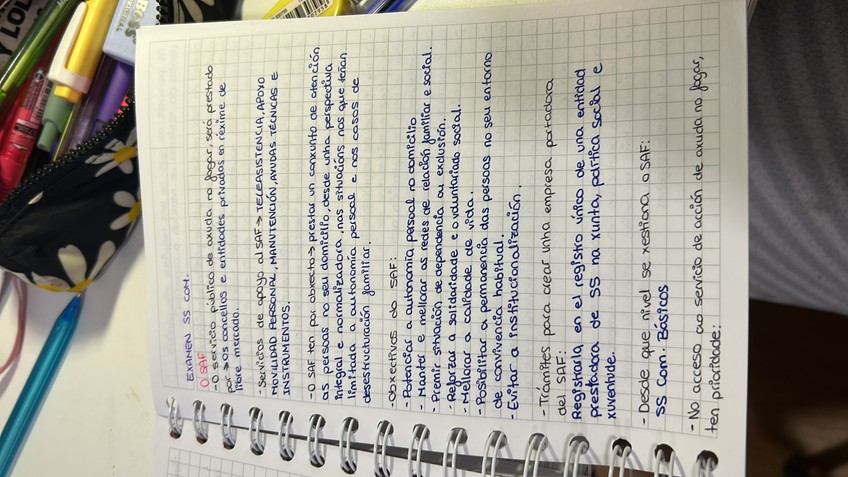 EXAMEN SS COM.
O SAF
- O servicio público de axuda no fogar, será prestado
por → os concellos e entidades privadas en réxime de
libre mercado.
- Servicios de apoyo al SAF → TELEASISTENCIA, APOYO
MOVILIDAD PERSONAL, MANUTENCIÓN, AYUDAS TÉCNICAS E
INSTRUMENTOS.
- O SAF ten por obxecto → prestar un conxunto de atención
as persoas no seu domicilio, desde unha perspectiva
integral e normalizadora, nas situacións nas que teñan
limitada a autonomía persoal e nos casos de
desestructuración familiar.
- obxectivos do SAF:
- Potenciar a autonomía persoal no domicilio
- Manter e mellorar as redes de relación familiar e social.
- Previr situación de dependencia ou exclusión.
- Reforzar a solidaridade e o voluntariado social.
- Mellorar a calidade de vida.
- Posibilitar a permanencia das persoas no seu entorno
de convivencia habitual.
- Evitar a institucionalización.
- Trámites para crear unha empresa portadora
del SAF:
Registrarla en el registro único de una entidad
prestadora de SS na xunta, política social e
xuventude.
- Desde que nivel se xestiona o SAF:
SS Com. Básicos
- No acceso ao servicio de acción de axuda no fogar,
ten prioridade: